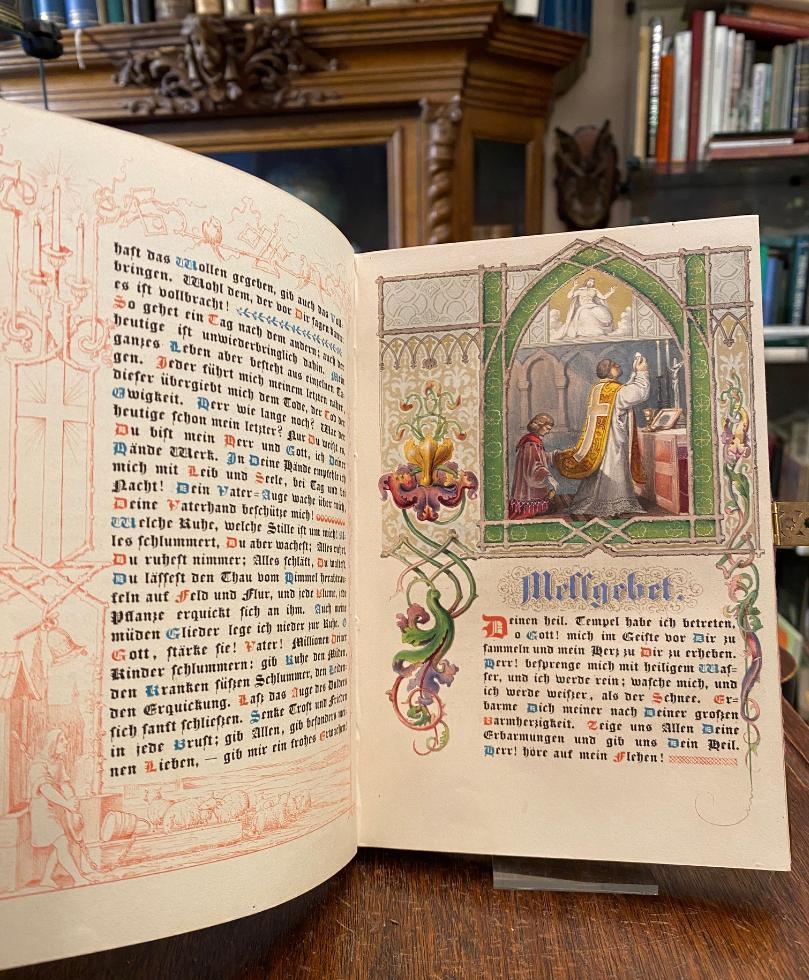 haft das Wollen gegeben, gib auch das Voll-
bringen. Wohl dem, der vor Dir sagen kann:
es ist vollbracht!
So gehet ein Tag nach dem andern; auch der
heutige ist unwiederbringlich dahin. Mein
ganzes Leben aber besteht aus einzelnen Ta-
gen. Jeder führt mich meinem letzten näher,
dieser übergiebt mich dem Tode, der Tod der
Ewigkeit. Herr wie lange noch? War der
heutige schon mein letzter? Nur Du weißt es,
Du bist mein Herr und Gott, ich Deiner
Hände Werk. In Deine Hände empfehle ich
mich mit Leib und Seele, bei Tag und bei
Nacht! Dein Vater-Auge wache über mich,
Deine Vaterhand beschütze mich!
Welche Ruhe, welche Stille ist um mich! Al-
les schlummert, Du aber wachest; Alles ruhet,
Du ruhest nimmer; Alles schläft, Du waltest.
Du lässest den Thau vom Himmel herabträu-
feln auf Feld und Flur, und jede Blume, jede
Pflanze erquickt sich an ihm. Auch meine
müden Glieder lege ich nieder zur Ruhe. O
Gott, stärke sie! Vater! Millionen Deiner
Kinder schlummern: gib Ruhe den Müden,
den Kranken süßen Schlummer, den Leiden-
den Erquickung. Laß das Auge des Dulders
sich sanft schließen. Senke Trost und Frieden
in jede Brust; gib Allen, gib besonders mei-
nen Lieben, — gib mir ein frohes Erwachen!
Messgebet.
Deinen heil. Tempel habe ich betreten,
o Gott! mich im Geiste vor Dir zu
sammeln und mein Herz zu Dir zu erheben.
Herr! besprenge mich mit heiligem Was-
ser, und ich werde rein; wasche mich, und
ich werde weißer, als der Schnee. Er-
barme Dich meiner nach Deiner großen
Barmherzigkeit. Zeige uns Allen Deine
Erbarmungen und gib uns Dein Heil.
Herr! höre auf mein Flehen!